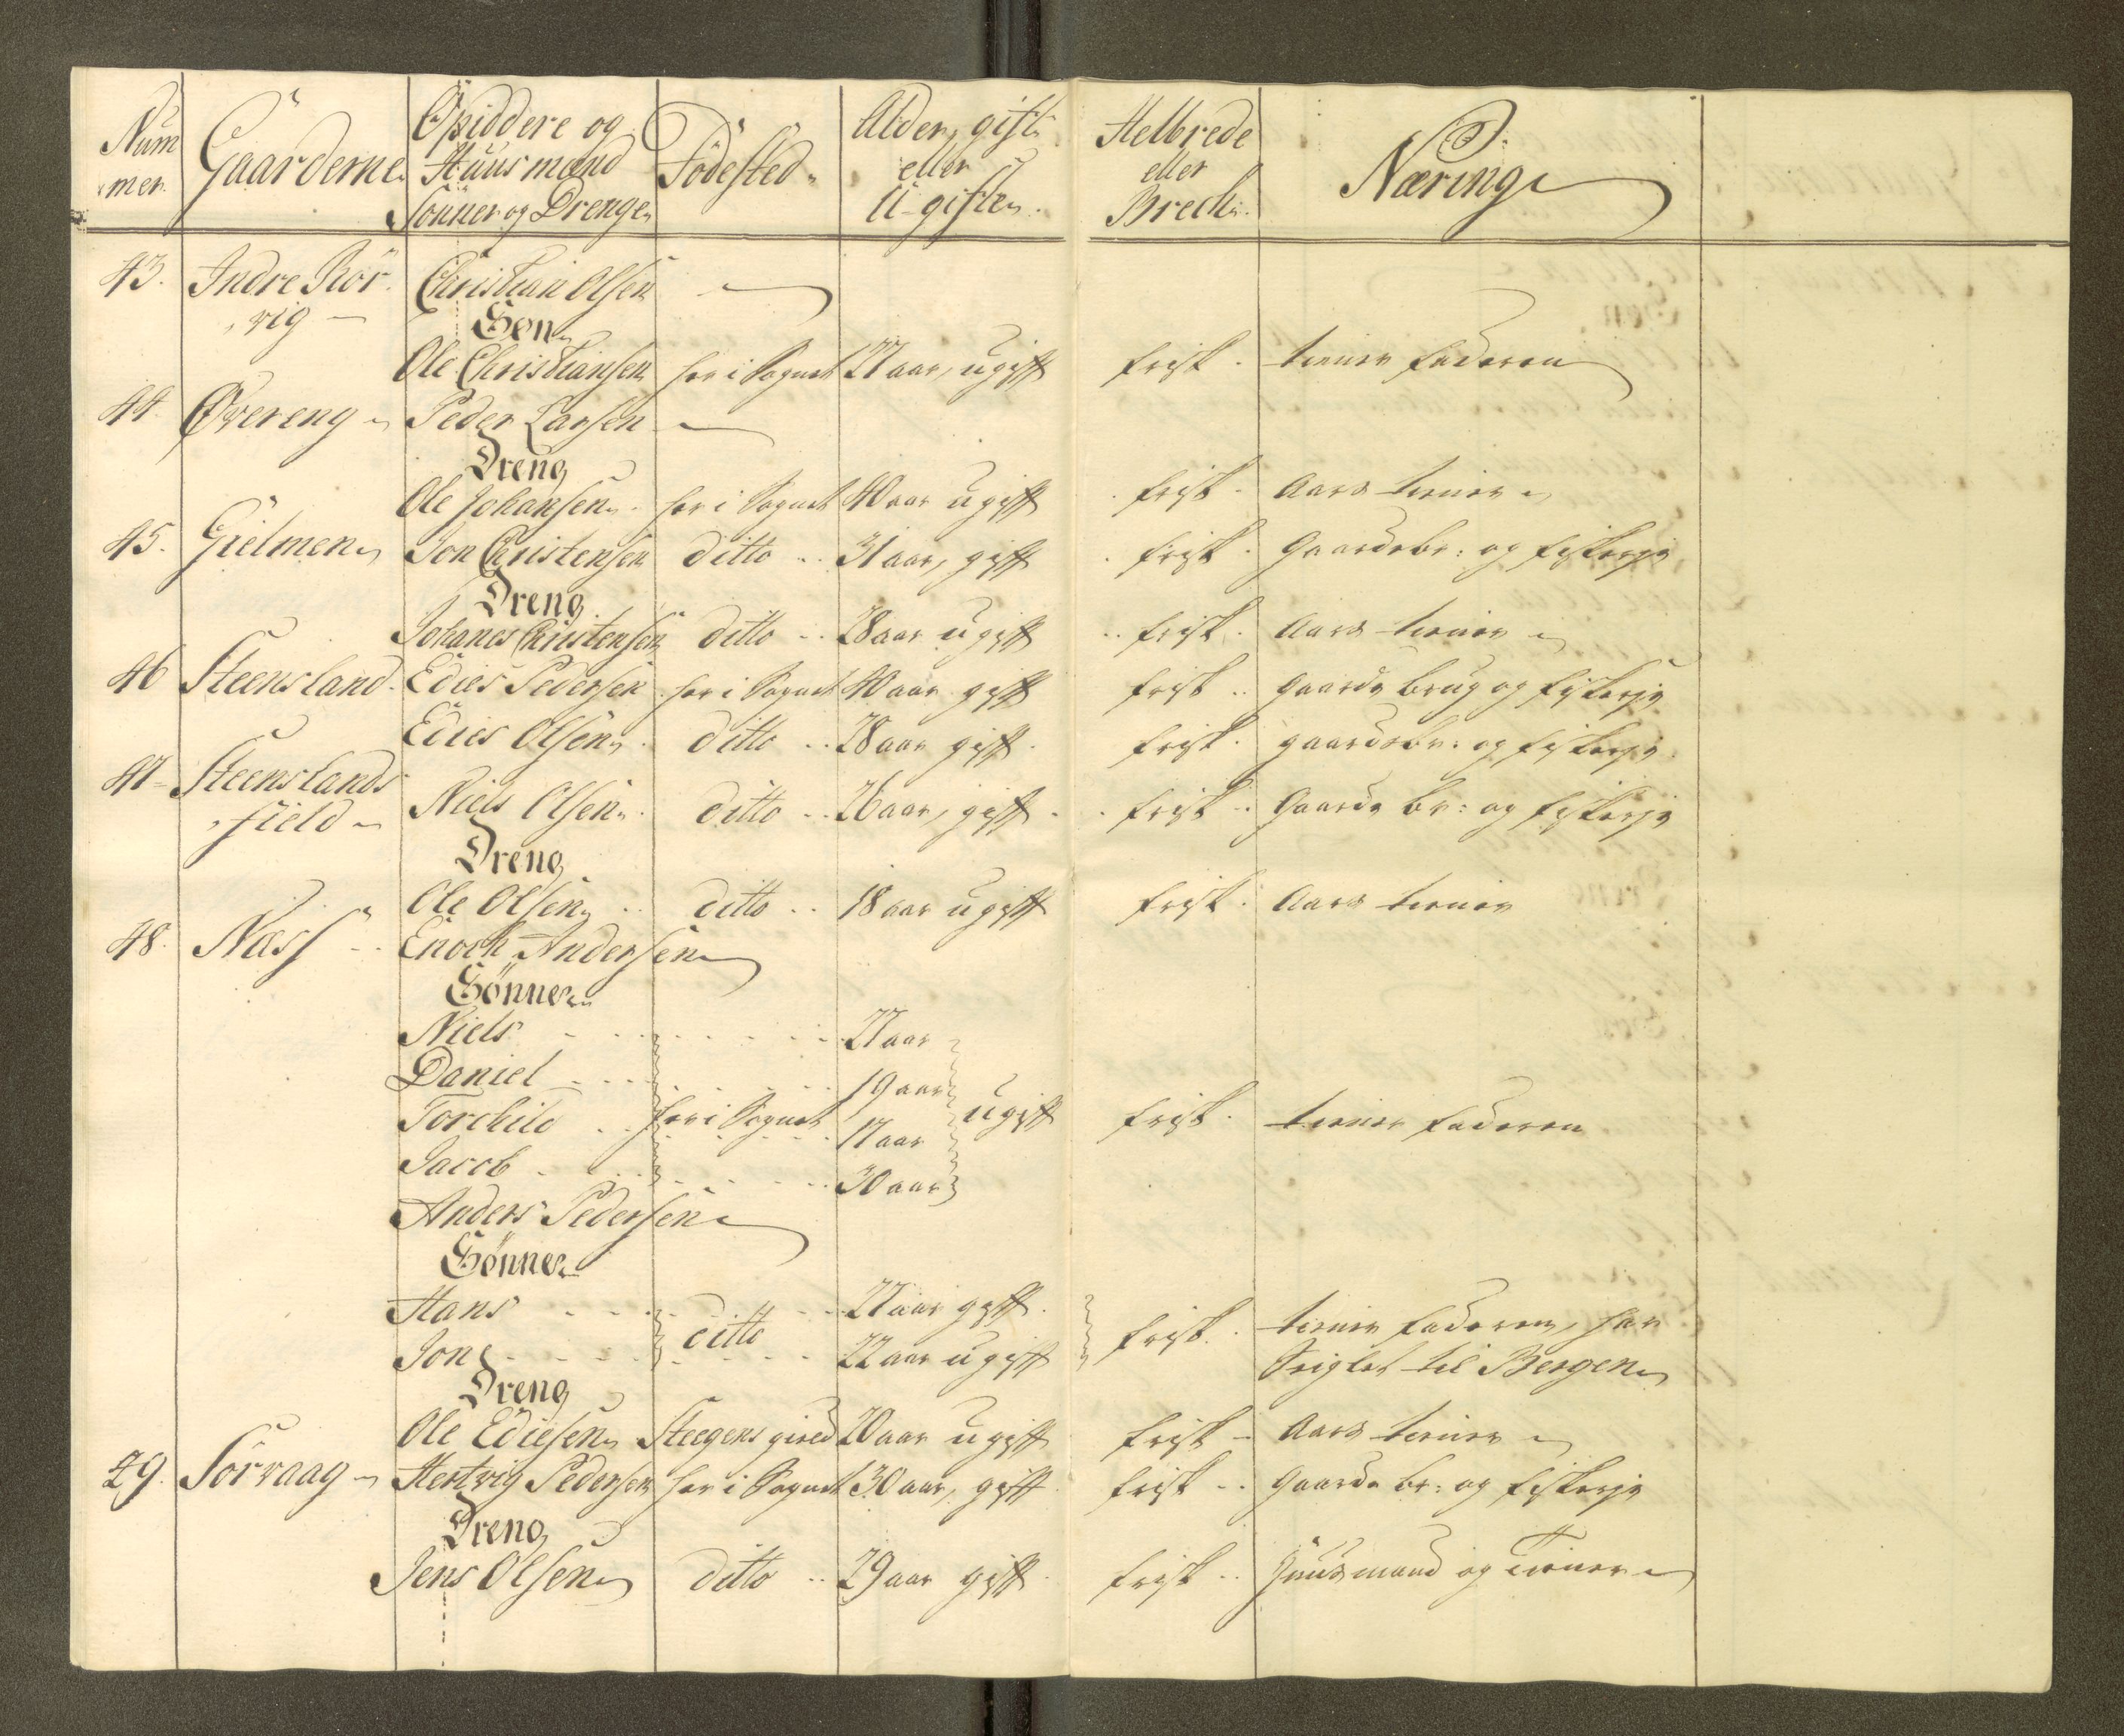 Num
mer.
Gaarderne.
Opiddere og
Huusmænd
Sønner og Drenge
Fødested
Alder, gift
eller
U-gifte.
Helbrede
eller
Brech.
Næring
43. Indre Rör- Christian Olsen
vig
Søn
Ole Christiansen her i Sognet 27 aar, ugift frisk. tiener Faderen
44. Øvereng Peder Larsen
Dreng
Ole Johansen. her i Sognet 40 aar ugift frisk. Aars tiener
45. Gielmen Jon Christensen ditto 31 aar, gift frisk. Gaardsbr: og fiskerje
Dreng
Johanes Christensen ditto 28 aar ugift frisk. Aars tiener
46 Steensland. Edies Pedersen her i Sognet 40 aar gift frisk. Gaards brug og fiskerje
Edies Olsen ditto 28 aar gift. frisk. gaardsbr: og fiskerje
47 Steenslands
field Niels Olsen. ditto 26 aar, gift. frisk Gaards br: og fiskerje
Dreng
Ole Olsen ditto 18 aar ugift frisk. Aars tiener
48. Næss Enoch Andersen
Sønner
Niels 27 aar
Daniel 19 aar
Torchild her i Sognet 17 aar ugift frisk. tiener Faderen
Jacob 30 aar
Anders Pedersen
Sønner
Hans 27 aar gift.
Jon ditto 22 aar ugift frisk. tiener Faderen, har
Seiglet til Bergen
Dreng
Ole Ediesen Steegens gield 20 aar ugift frisk Aars tiener
49. Sörvaag Hertvig Pedersen her i Sognet 30 aar, gift. frisk Gaards br: og fiskerje
Dreng
Jens Olsen ditto 29 aar gift. frisk Huusmand og Tiener